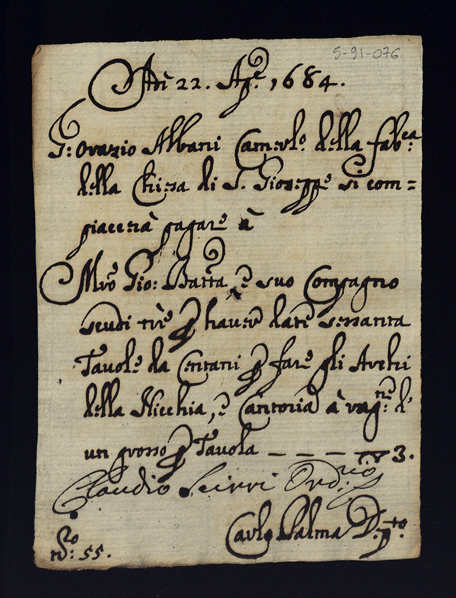 5-91-076
Adì 22. Ag.º 1684.
S: Orazio Albani Camerl.º della fab.ca
della Chiesa di S. Gioseppe si com=
piacerà pagare à
Mrº Gio: Batta, e suo Compagno
scudi trè p haver dato sessanta
Tavole da p fare gli Archi
della Nicchia, e Cantoria à rag.ne di
un grosso p Tavola — — — 3.
Claudio Ord.rio
Carlo Palma D.pto.
N.º 55.